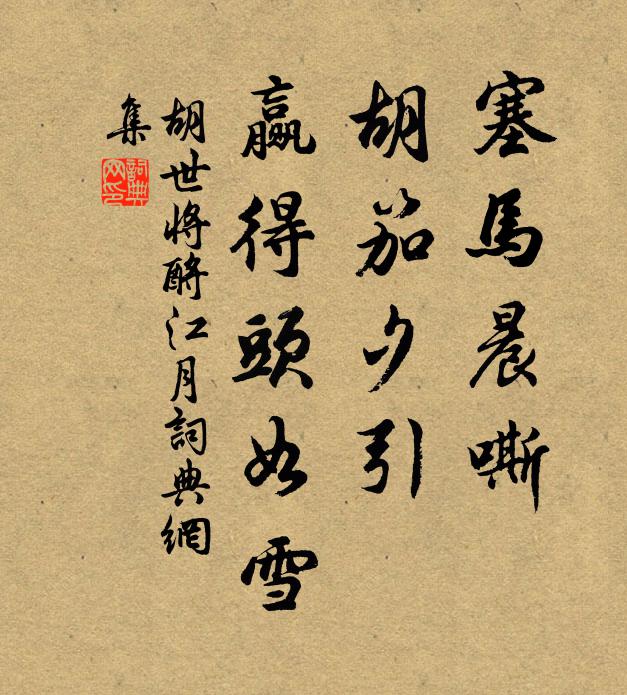 塞馬晨嘶
胡笳夕引
贏得頭如雪
胡世將酹江月詞典網
集
詞典
网印